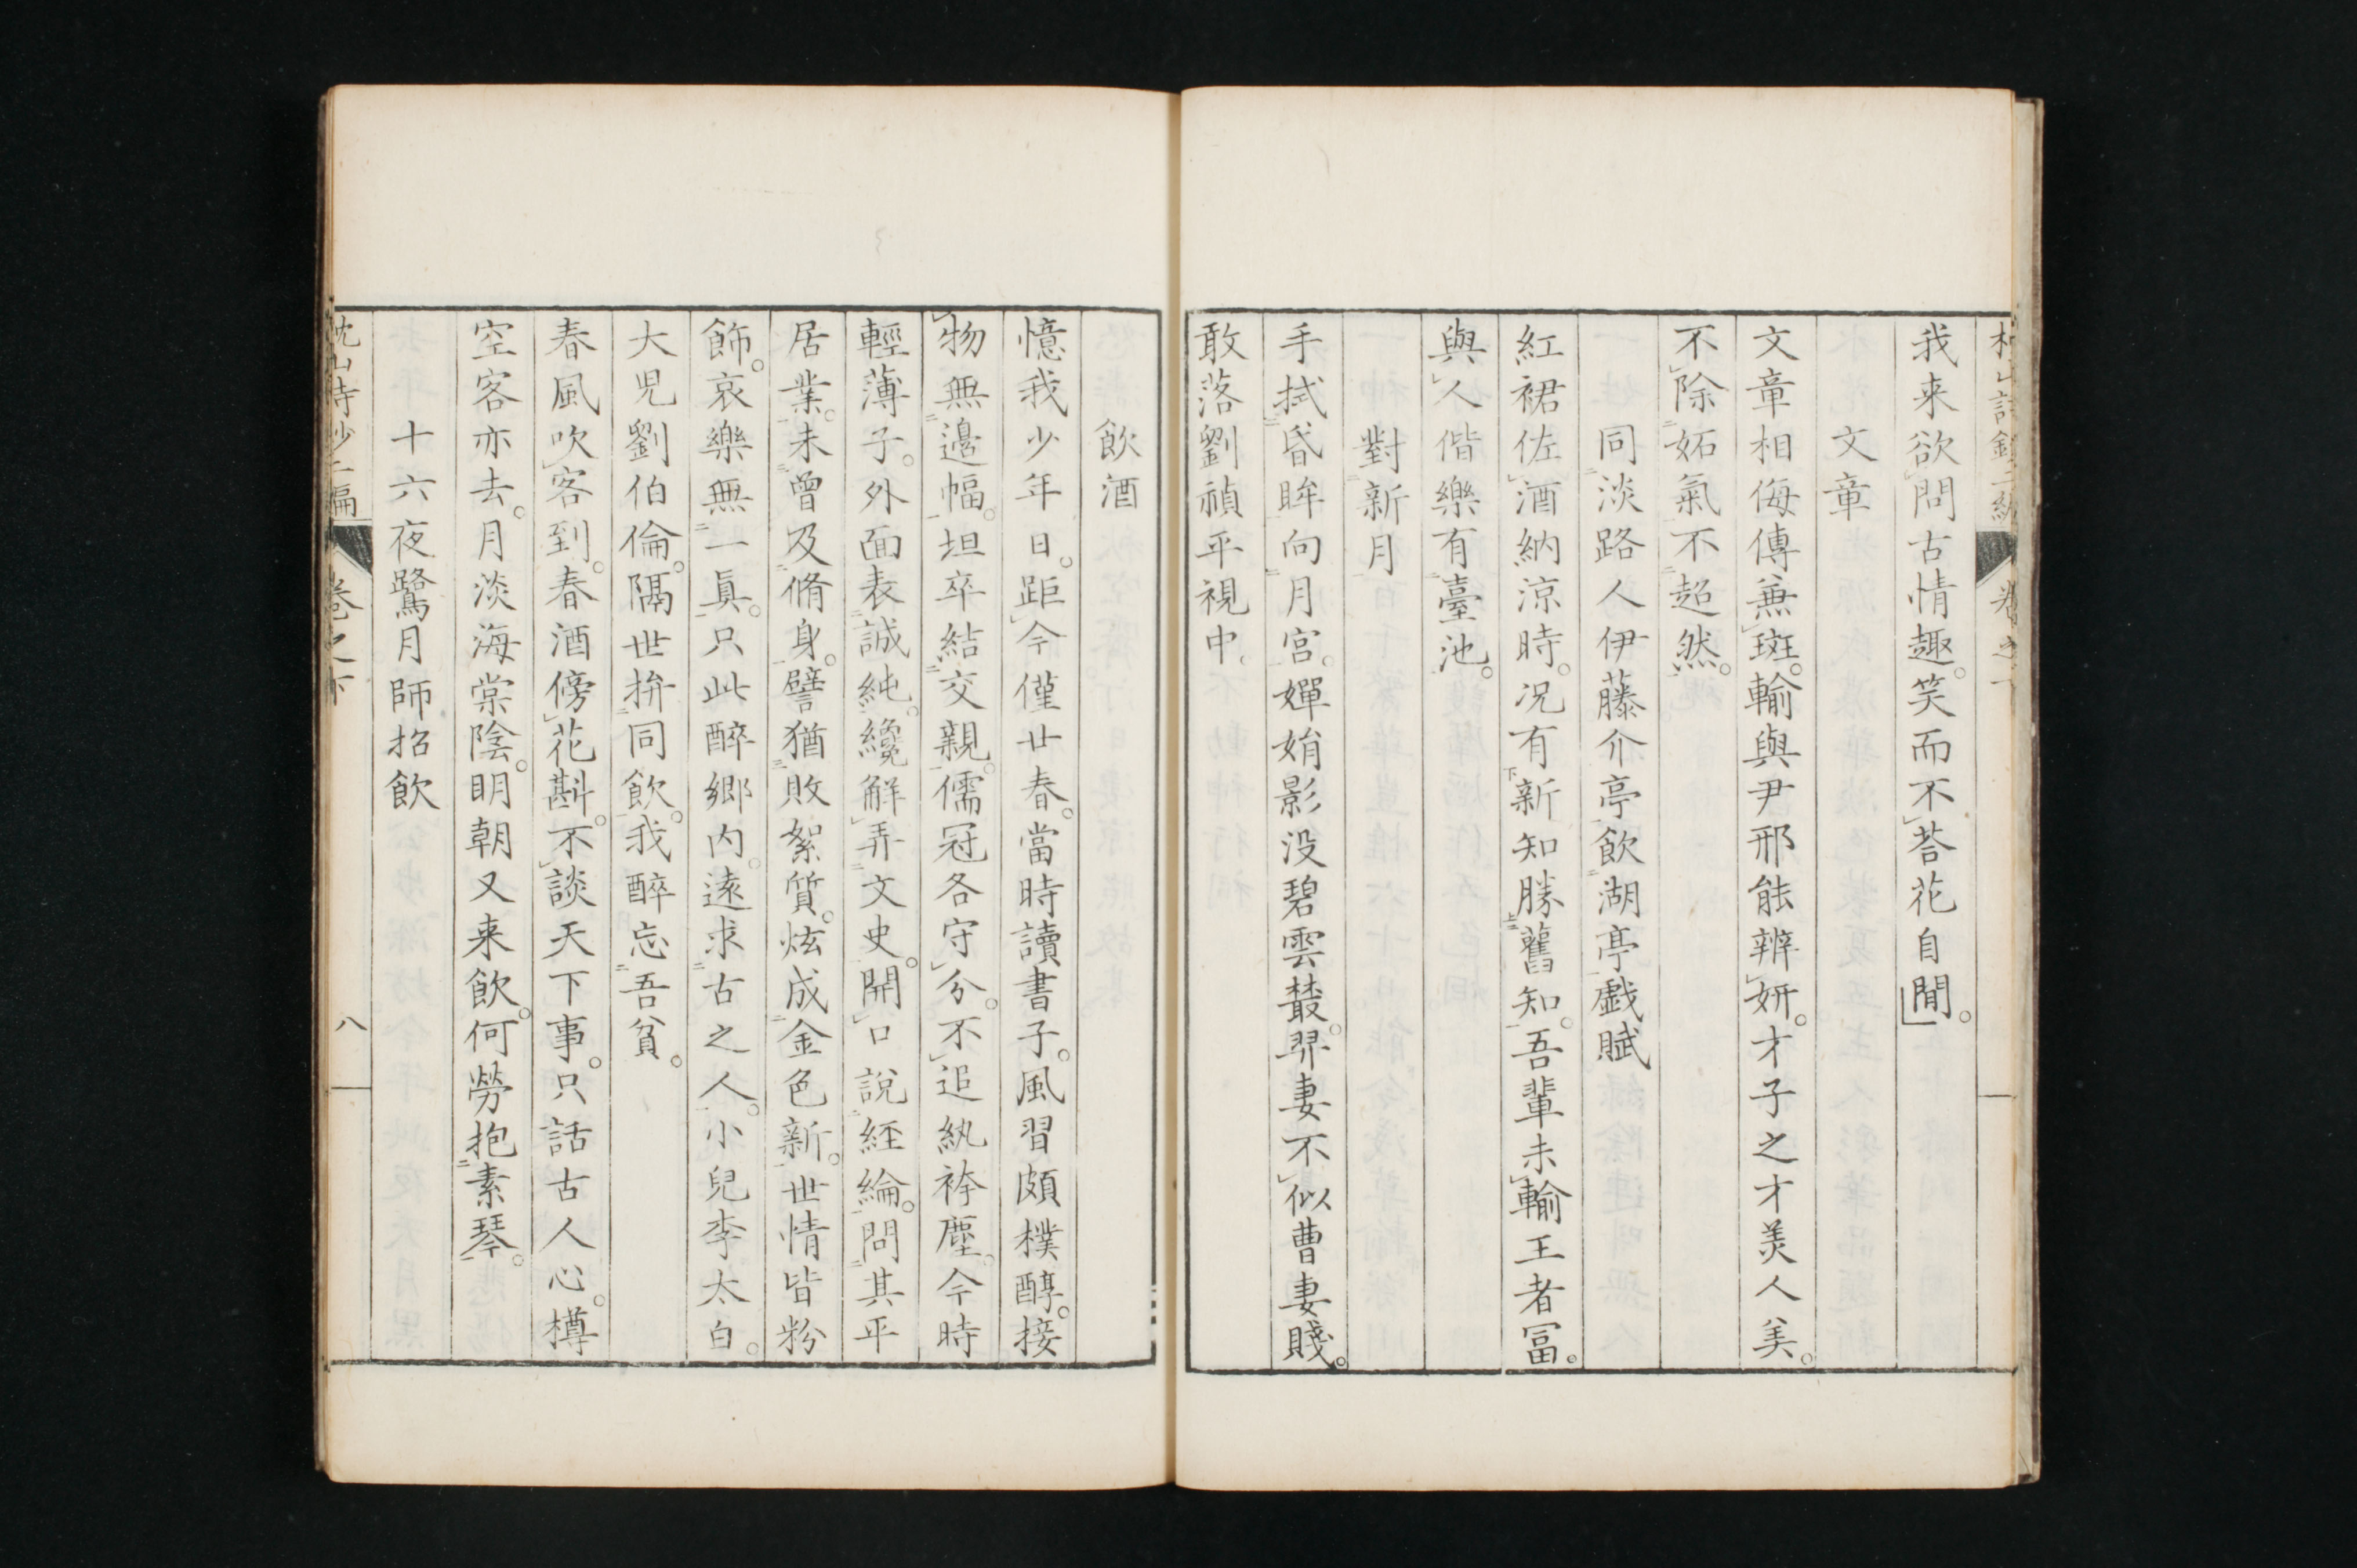 我来欲問古情趣。笑而不荅花自閒。
文章
文章相侮傳兼斑。輸與尹邢能辨妍。才子之才美人美。
不除妬氣不超然。
同淡路人伊藤介亭飲湖亭戯賦
紅裙佐酒納涼時。况有新知勝舊知。吾輩未輸王者冨。
與人偕樂有臺池。
對新月
手拭昏眸向月宮。嬋娟影没碧雲叢。羿妻不似曹妻賤。
敢落劉禎平視中。
飲酒
憶我少年日。距今僅廿春。當時讀書子。風習頗樸醇。接
物無邊幅。坦卒結交親。儒冠各守分。不追紈袴塵。今時
輕薄子。外面表誠純。纔解弄文史。開口說経綸。問其平
居業。未曾及脩身。譬猶敗絮質。炫成金色新。世情皆粉
飾。哀樂無一眞。只此醉鄉内。遠求古之人。小兒李太白。
大児劉伯倫。隔世拚同飲。我醉忘吾貧。
春風吹客到。春酒傍花斟。不談天下事。只話古人心。樽
空客亦去。月淡海棠陰。明朝又来飲。何勞抱素琴。
十六夜鷺月師招飲
枕山詩鈔二編 卷之下 八